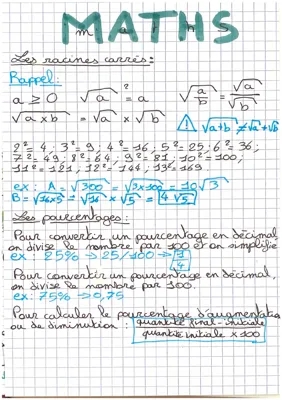 MATHS
maths
Les racines carrés :
Rappel :
a ≥ 0 √a² = a √(a/b) = √a/√b
√(a×b) = √a × √b ⚠ √(a+b) ≠ √a+√b
2²=4 ; 3²=9 ; 4²=16 ; 5²=25 ; 6²=36 ;
7²=49 ; 8²=64 ; 9²=81 ; 10²=100 ;
11²=121 ; 12²=144 ; 13²=169
ex : A = √300 = √(3×100) = 10√3
B = √(16×5) = √16 × √5 = 4√5
Les pourcentages :
Pour convertir un pourcentage en décimal
on divise le nombre par 100 et on simplifie
ex : 25% → 25/100 → 1/4
Pour convertir un pourcentage en décimal,
on divise le nombre par 100.
ex : 75% → 0,75
Pour calculer le pourcentage d'augmentation
ou de diminution : quantité final - initiale
quantité initiale × 100